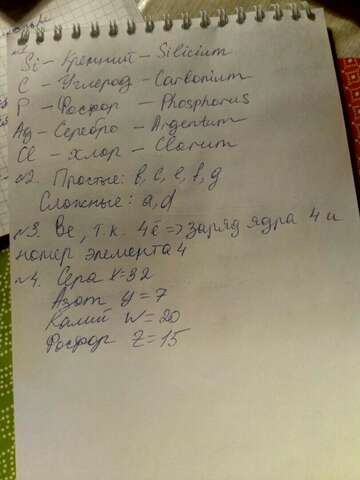 Si - Кремний - Silicium
C - Углерод - Carbonium
P - Фосфор - Phosphorus
Ag - Серебро - Argentum
Cl - Хлор - Clorum
№2. Простые: b, c, e, f, g
Сложные: a, d
№3. Be, т.к. 4ē => заряд ядра 4 и
номер элемента 4
№4. Сера X=32
Азот y=7
Калий W=20
Фосфор Z=15